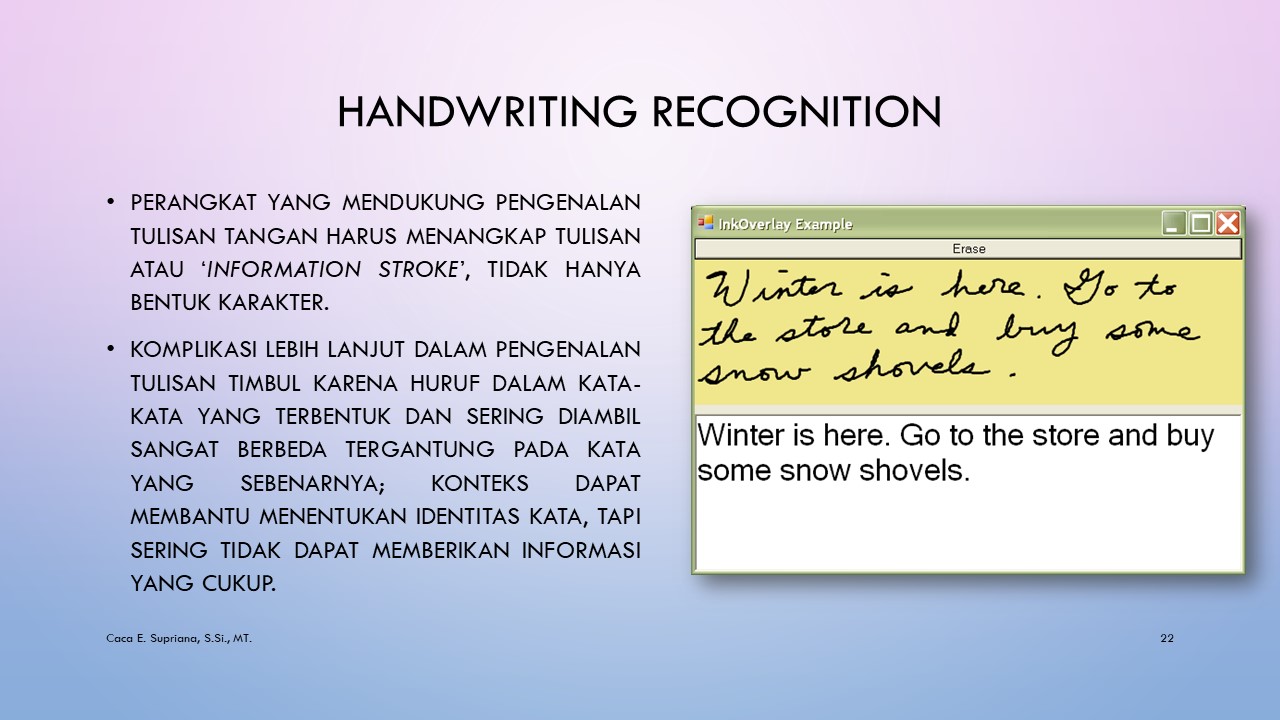 HANDWRITING RECOGNITION
• PERANGKAT YANG MENDUKUNG PENGENALAN
TULISAN TANGAN HARUS MENANGKAP TULISAN
ATAU ‘INFORMATION STROKE’, TIDAK HANYA
BENTUK KARAKTER.
• KOMPLIKASI LEBIH LANJUT DALAM PENGENALAN
TULISAN TIMBUL KARENA HURUF DALAM KATA-
KATA YANG TERBENTUK DAN SERING DIAMBIL
SANGAT BERBEDA TERGANTUNG PADA KATA
YANG SEBENARNYA; KONTEKS DAPAT
MEMBANTU MENENTUKAN IDENTITAS KATA, TAPI
SERING TIDAK DAPAT MEMBERIKAN INFORMASI
YANG CUKUP.
InkOverlay Example
Erase
Winter is here. Go to
the store and buy some
snow shovels.
Winter is here. Go to the store and buy
some snow shovels.
Caca E. Supriana, S.Si., MT.
22